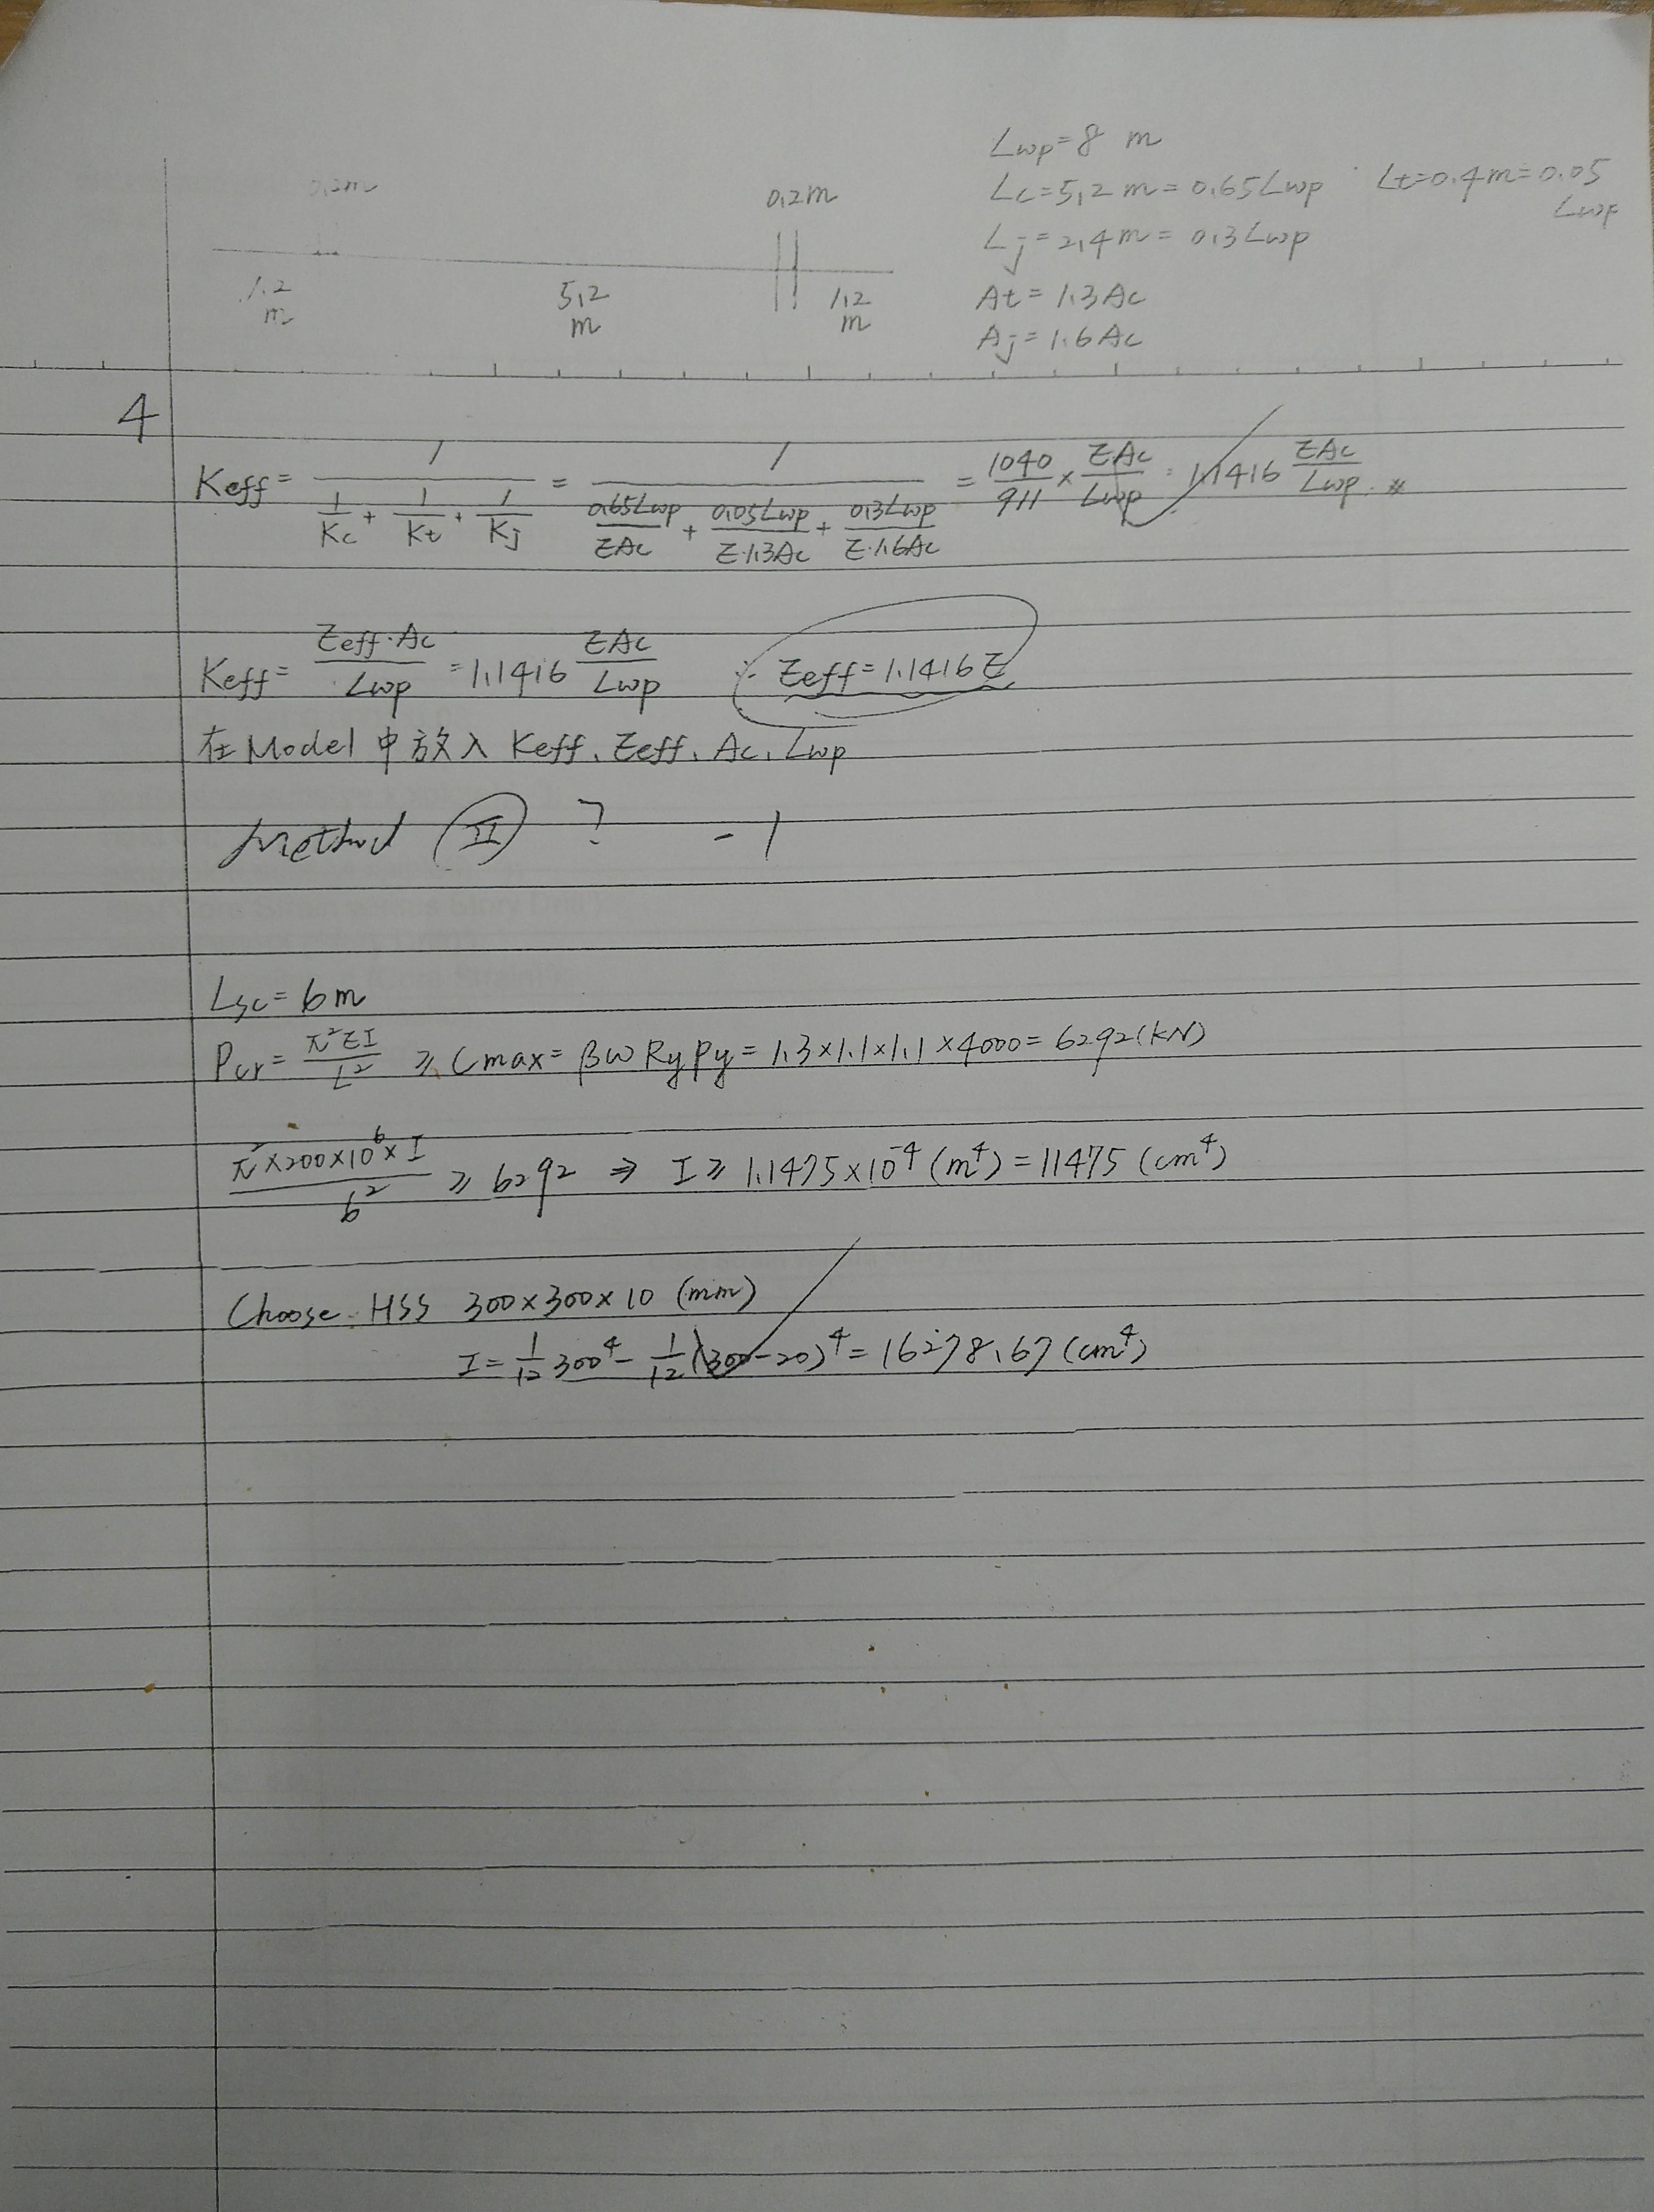 0.2m 0.2m
1.2 m 5.2 m 1.2 m
Lwp=8 m
Lc=5.2m=0.65Lwp Lt=0.4m=0.05 Lwp
Lj=2.4m=0.3Lwp
At=1.3Ac
Aj=1.6Ac
4
Keff= 1/(1/Kc + 1/Kt + 1/Kj) = 1/(0.65Lwp/EAc + 0.05Lwp/E·1.3Ac + 0.3Lwp/E·1.6Ac) = 1040/911 × EAc/Lwp = 1.1416 EAc/Lwp.
Keff= Eeff·Ac/Lwp = 1.1416 EAc/Lwp ∴ Eeff=1.1416E
在Model中放入 Keff、Eeff、Ac、Lwp
Method (II) ? -1
Lsc=6m
Pcr= π²EI/L² ≥ Cmax= βωRyPy= 1.3×1.1×1.1×4000= 6292(kN)
π²×200×10⁶×I/6² ≥ 6292 ⇒ I≥ 1.1475×10⁻⁴ (m⁴)= 11475 (cm⁴)
Choose HSS 300×300×10 (mm)
I= 1/12 300⁴- 1/12 (300-20)⁴= 16278.67 (cm⁴)